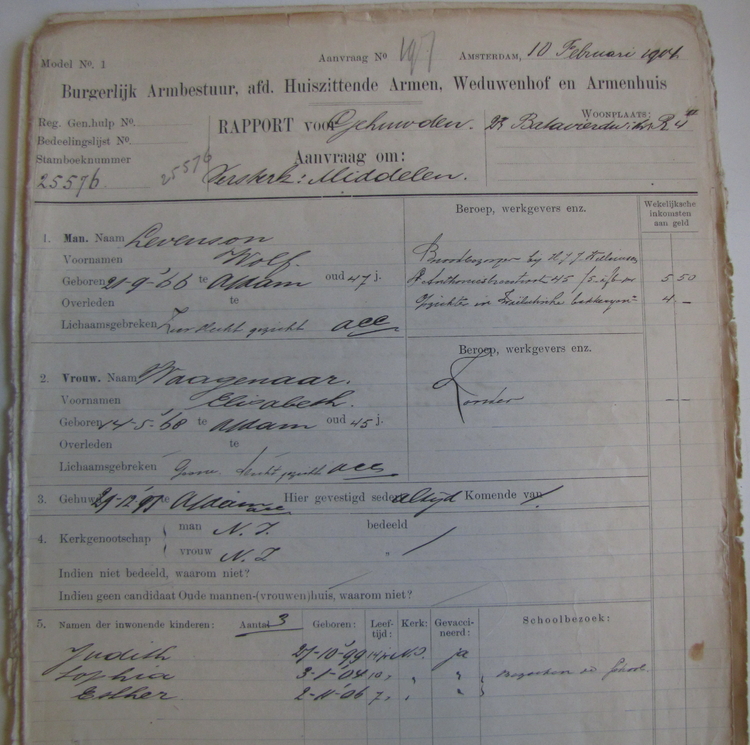 Model No. 1
Aanvraag No 197 AMSTERDAM, 10 Februari 1904
Burgerlijk Armbestuur, afd. Huiszittende Armen, Weduwenhof en Armenhuis
Reg. Gen.hulp No.
Bedeelingslijst No.
Stamboeknummer
25576
25576
RAPPORT voor Gehuwden.
Aanvraag om:
Versterk: Middelen.
WOONPLAATS:
28
Beroep, werkgevers enz.
Wekelijksche inkomsten aan geld
1. Man. Naam Levenson
Voornamen Wolf.
Geboren 21-9-'66 te A/dam oud 47 j.
St Anthoniesbreestraat 45 5 50
Overleden te
4 –
Lichaamsgebreken Zeer slecht gezicht acc
Beroep, werkgevers enz.
2. Vrouw. Naam Waagenaar.
Voornamen Elisabeth.
Zonder
Geboren 14-5-'68 te A/dam oud 45 j.
Overleden te
Lichaamsgebreken slecht gezicht acc
3. Gehuwd te A/dam acc Hier gevestigd seder altijd Komende van /
4. Kerkgenootschap man N. I. bedeeld
vrouw N. I. " /
Indien niet bedeeld, waarom niet?
Indien geen candidaat Oude mannen-(vrouwen)huis, waarom niet?
5. Namen der inwonende kinderen: Aantal 3 Geboren: Leeftijd: Kerk: Gevaccineerd: Schoolbezoek:
Judith 27-10-'99 14 j N.I. ja
Sophia 3-1-'04 10 " " "
Bezoeken de School.
Esther 2-11-'06 7 " " "